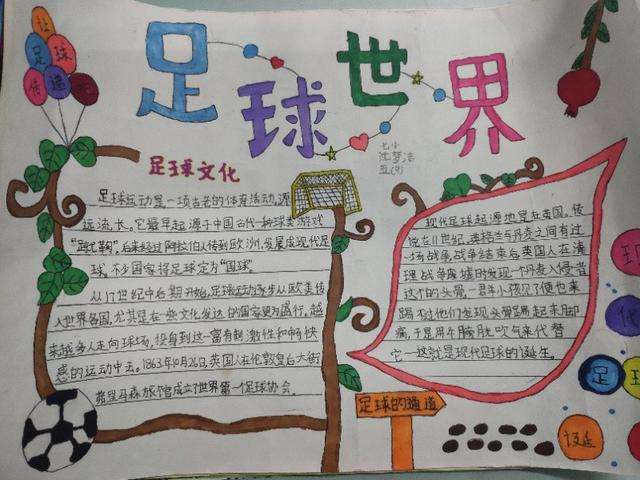 让
足球
传递
足球世界
七小
五(4)
足球文化
足球运动是一项古老的体育活动,源
远流长。它最早起源于中国古代一种球类游戏
“蹴鞠”,后来经过阿拉伯人传到欧洲,发展成现代足
球。不少国家将足球定为“国球”。
从17世纪中后期开始,足球运动逐步从欧美传
入世界各国,尤其是在一些文化发达的国家更为盛行。越
来越多人走向球场,投身到这一富有刺激性和畅快
感的运动中去。1863年10月26日,英国人在伦敦皇后大街
弗里马森旅馆成立了世界第一个足球协会。
现代足球起源地是在英国。传
说在11世纪,英格兰与丹麦之间有过
一场战争,战争结束后英国人在清
理战争废墟时发现一个丹麦入侵者
这个的头骨,一群小孩见了便也来
踢不过他们发现头骨踢起来脚
痛,于是用牛膀胱吹气来代替
它——这就是现代足球的诞生。
足球的通道
现
代
足
球